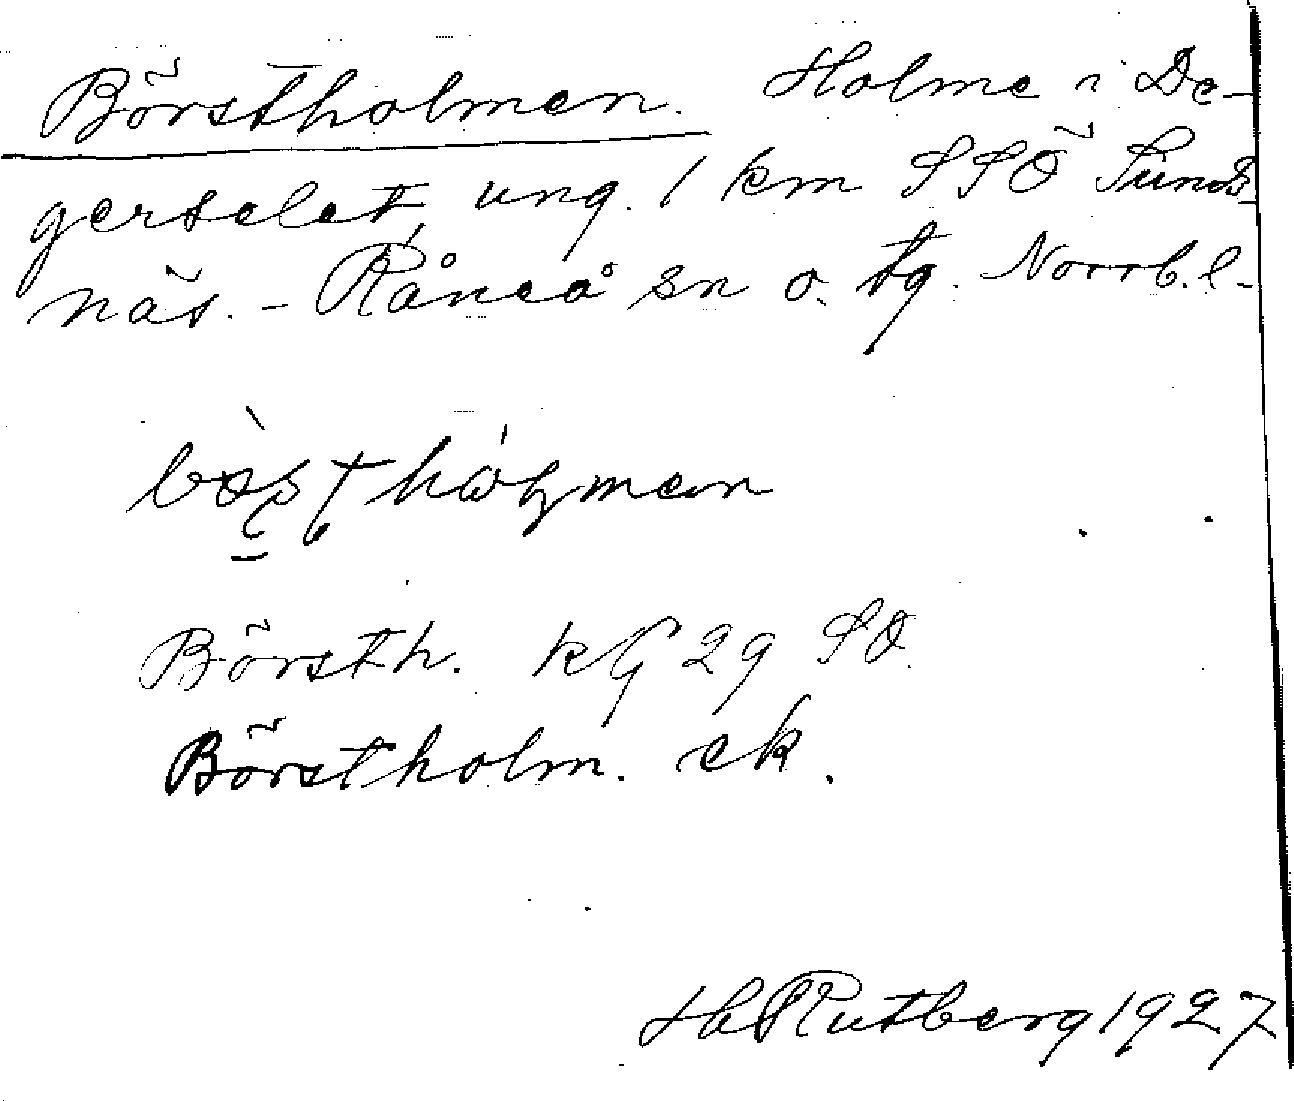 Börstholmen. Holme i De-
gerselet, ung. 1 km SSÖ Sunds-
näs. - Råneå sn o. tg. Norrb. l.
Börsth. kG 29 SO.
Börstholm. ek.
Rutberg 1927